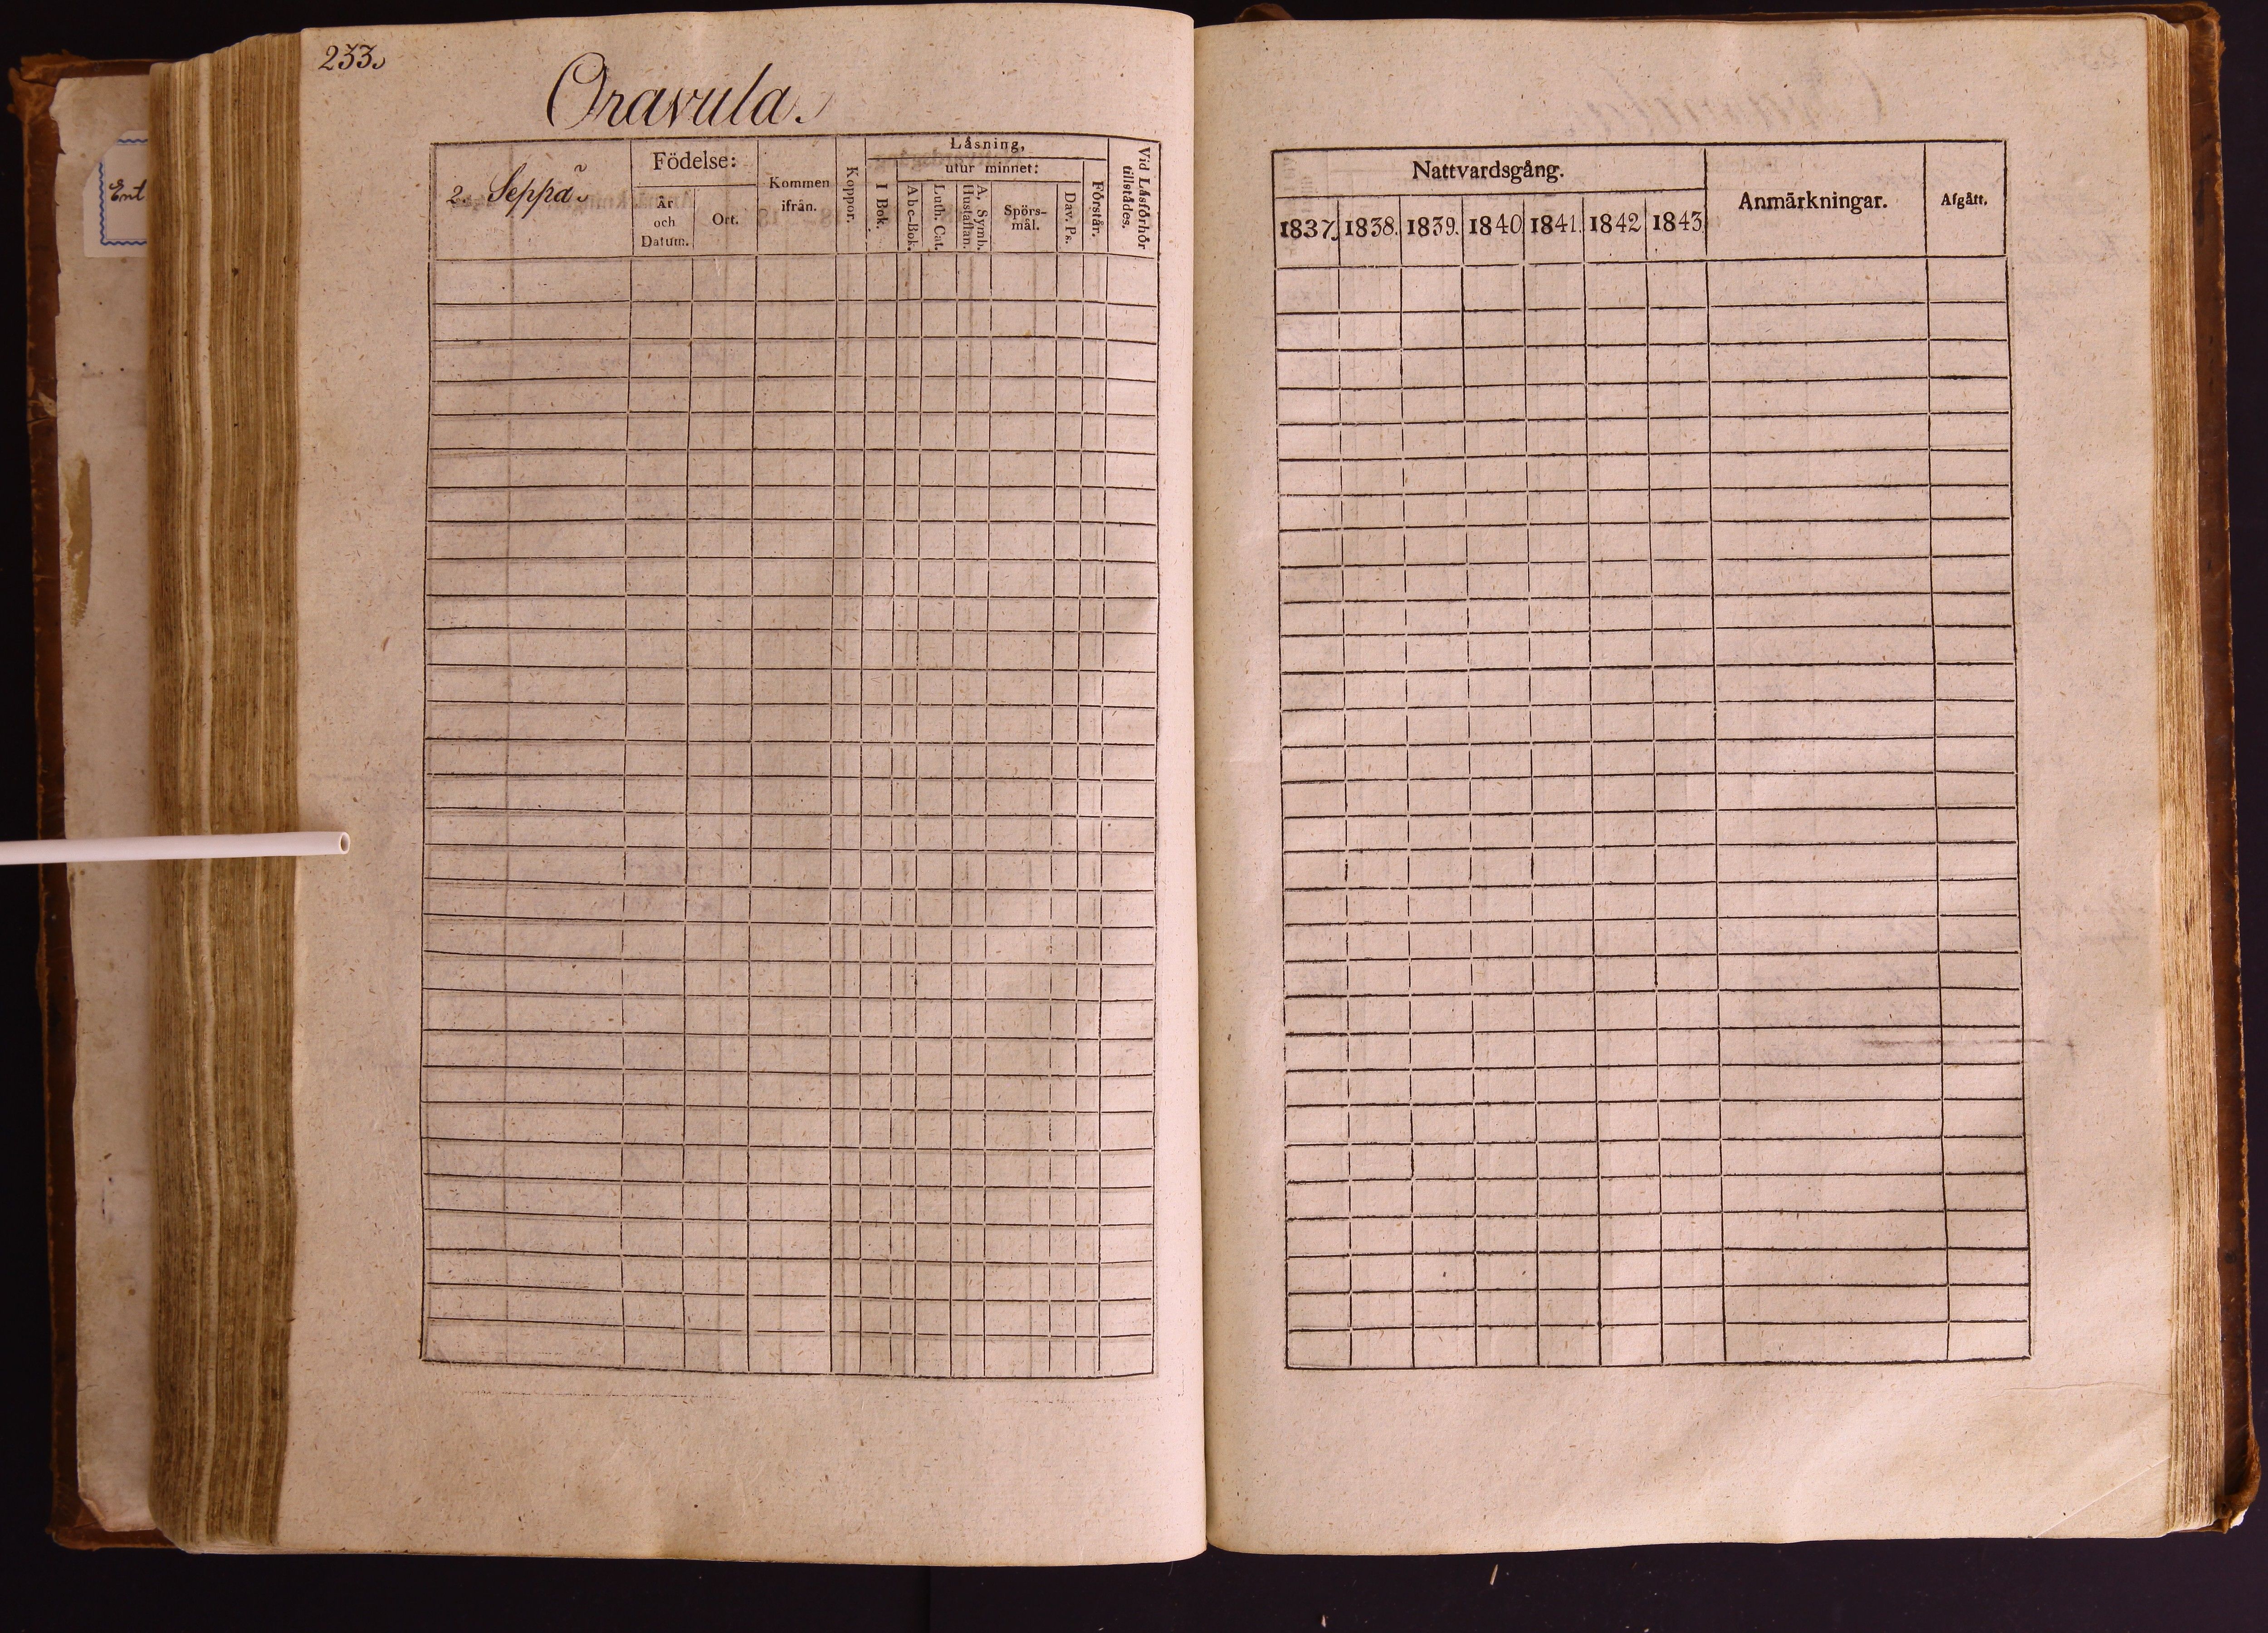 233.
Oravula.
Ent
2. Seppä.
Födelse:
År
och
Datum.
Ort.
Kommen
ifrån.
Koppor.
Läsning,
I Bok.
utur minnet:
Abc-Bok.
Luth. Cat.
A. Symb.
Hustaflan.
Spörs-
mål.
Dav. Ps.
Förstår.
Vid Läsförhör
tillstädes.
Nattvardsgång.
1837. 1838. 1839. 1840 1841. 1842 1843.
Anmärkningar.
Afgått.